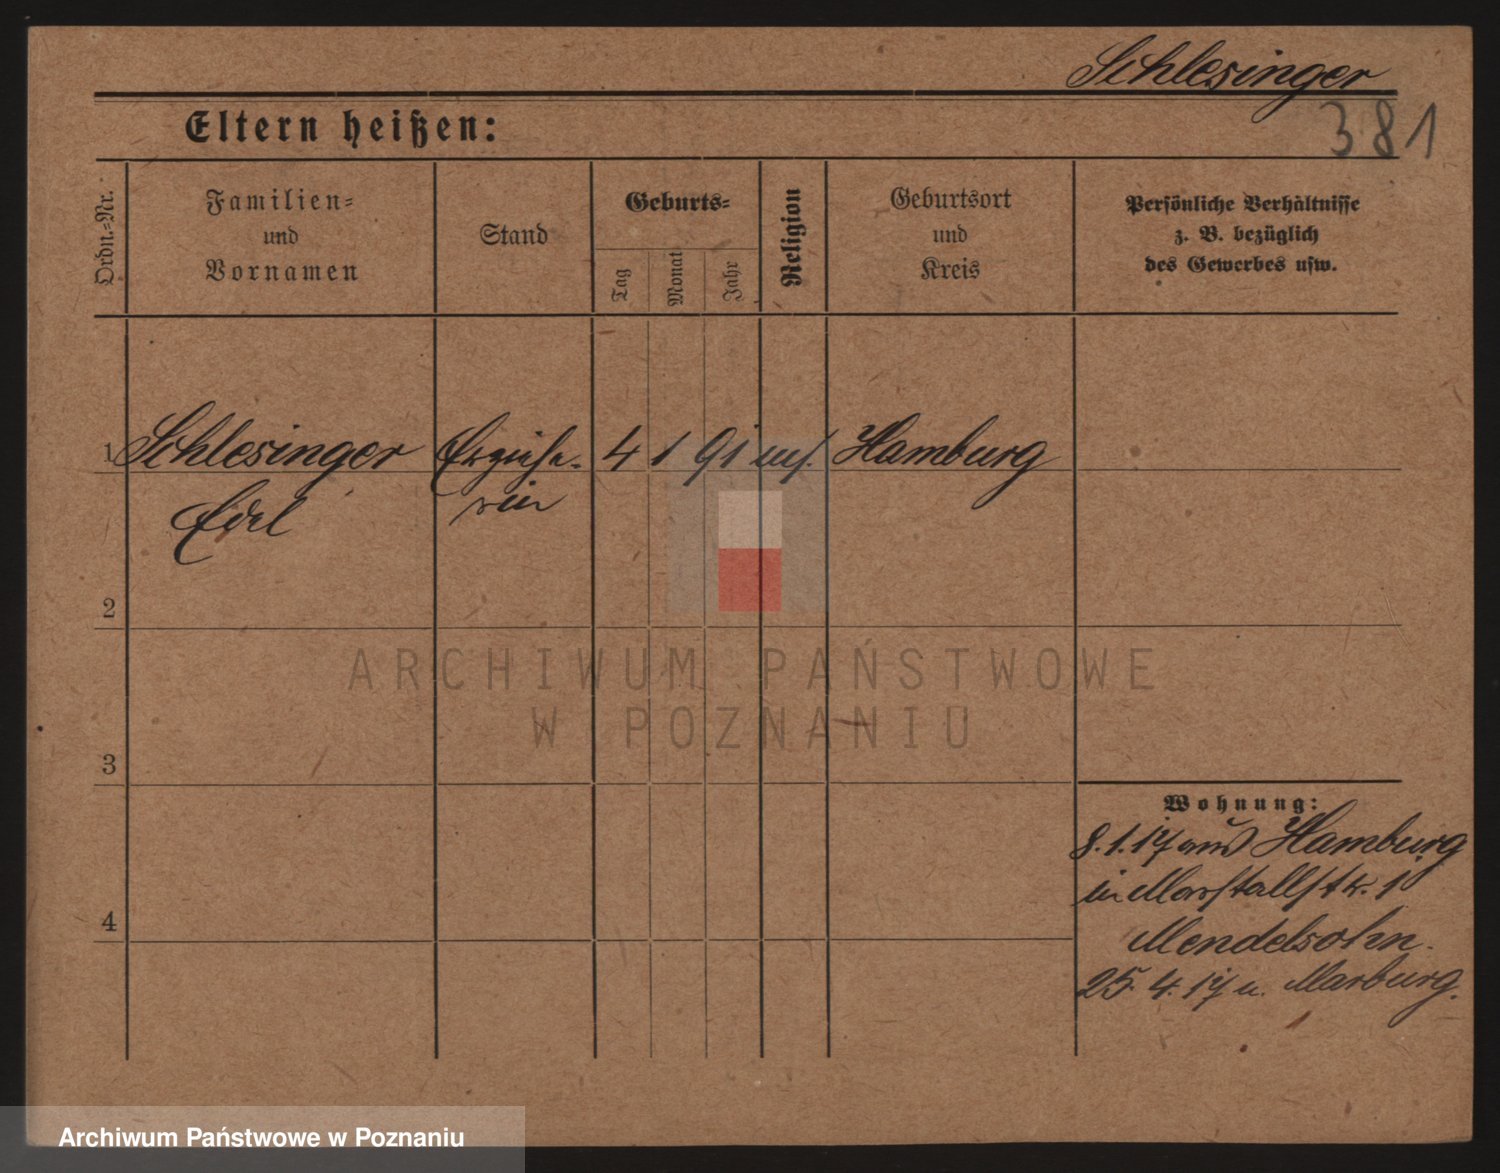 Schlesinger
381
Eltern heißen:
Ordn.-Nr.
Familien-
und
Vornamen
Stand
Geburts-
Tag
Monat
Jahr
Religion
Geburtsort
und
Kreis
Persönliche Verhältnisse
z. B. bezüglich
des Gewerbes usw.
1 Schlesinger Erziehe- 4 1 91 Hamburg
Edel rin
2
3
4
Wohnung:
8.1.17 aus Hamburg
in Marstallstr. 1
Mendelsohn.
25.4.17 n. Marburg.
ARCHIWUM PAŃSTWOWE
W POZNANIU
Archiwum Państwowe w Poznaniu